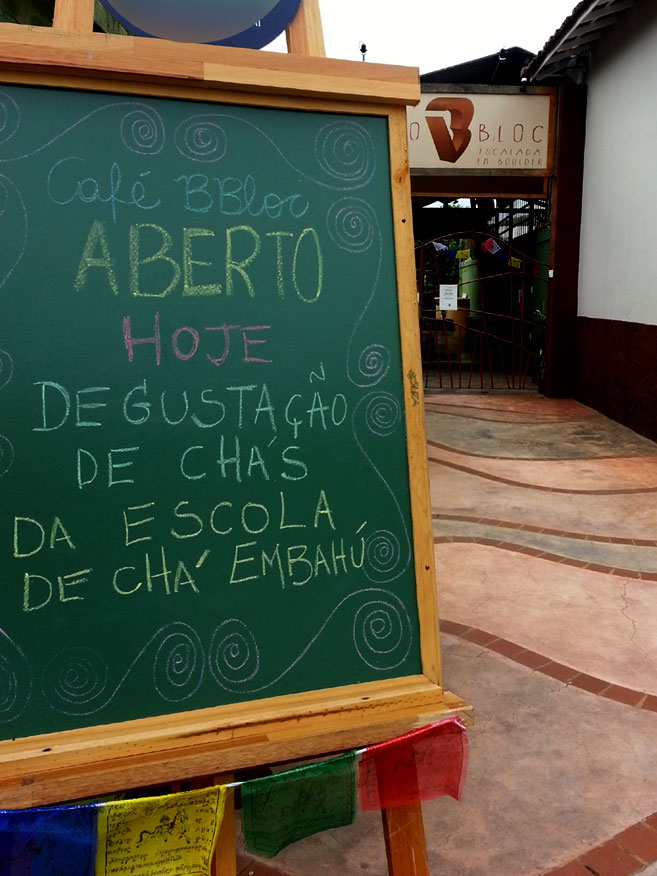 Café BBloc
ABERTO
HOJE
DEGUSTAÇÃO
DE CHÁS
DA ESCOLA
DE CHÁ EMBAHÚ
BLOC
ESCALADA
EM BOULDER